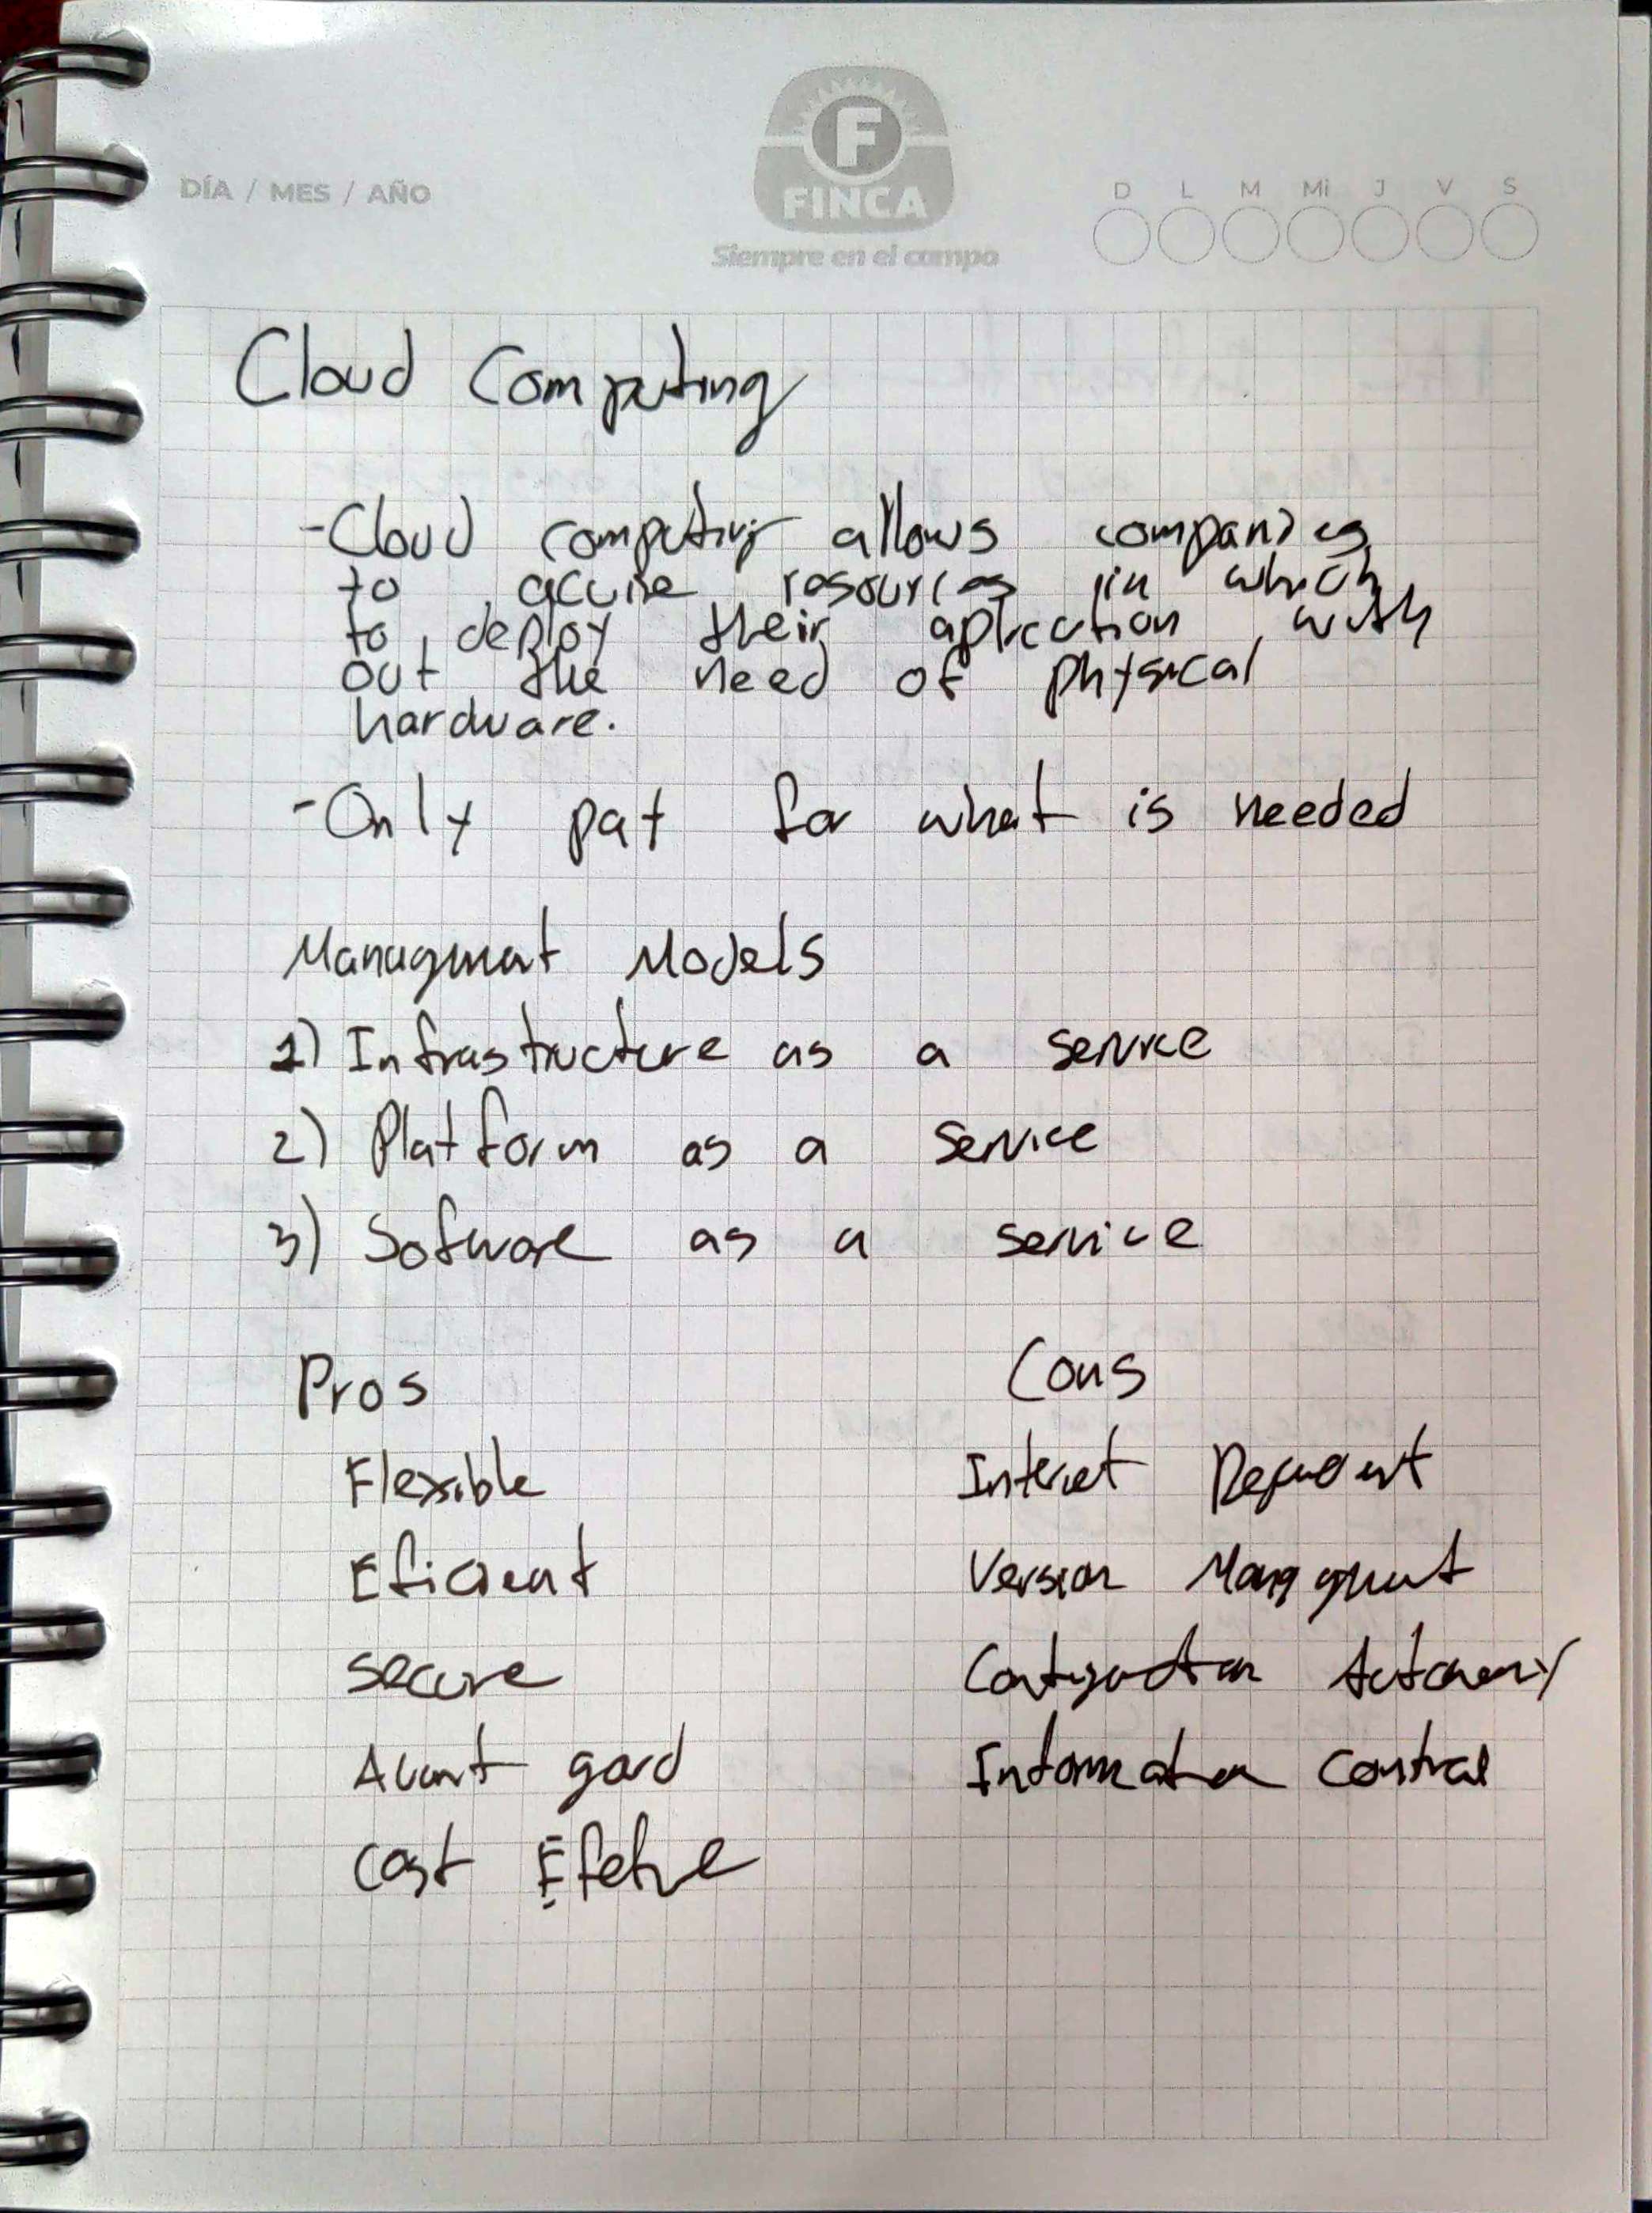 DÍA / MES / AÑO
F
FINCA
Siempre en el campo
D L M Mi J V S
Cloud Computing
-Cloud computing allows companies
to acuire resources in which
to deploy their aplication with
out the need of physical
hardware.
-Only pay for what is needed
Managment Models
1) Infrastructure as a service
2) Platform as a service
3) Sofware as a service
Pros Cons
Flexible Internet
Eficient Version Managment
Secure Autonomy
Avant gard Information Control
Cost Efetive